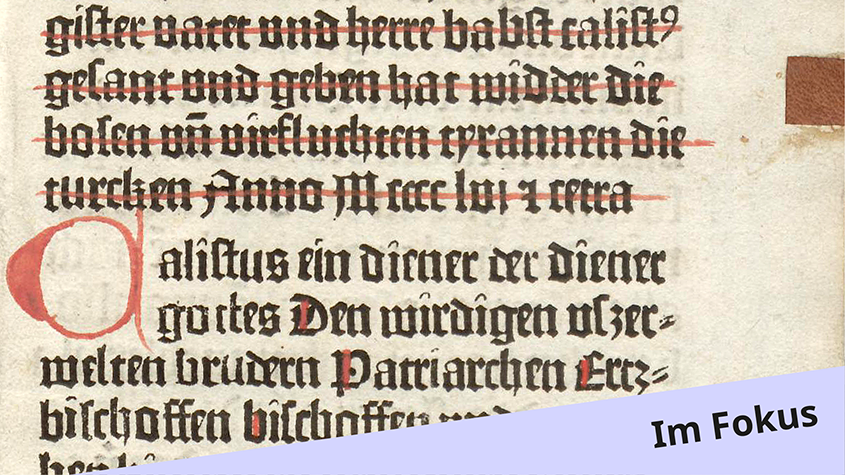 gister vater vnd herre babst calistꝯ
gesant vnd geben hat widder die
bosen vñ virfluchten tyrannen die
turcken Anno M cccc lvi ⁊ cetra
Calistus ein diener der diener
gottes Den wirdigen vszer⸗
welten brudern Patriarchen Ertz⸗
bischoffen bischoffen vnd
Im Fokus